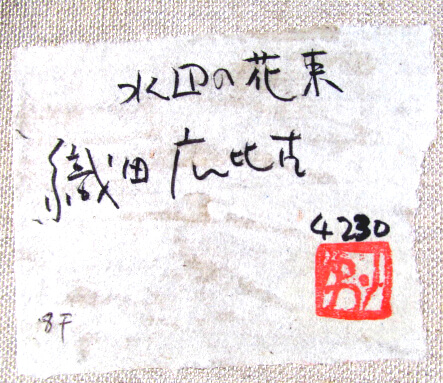 水辺の花束
織田广比古
4230
8F